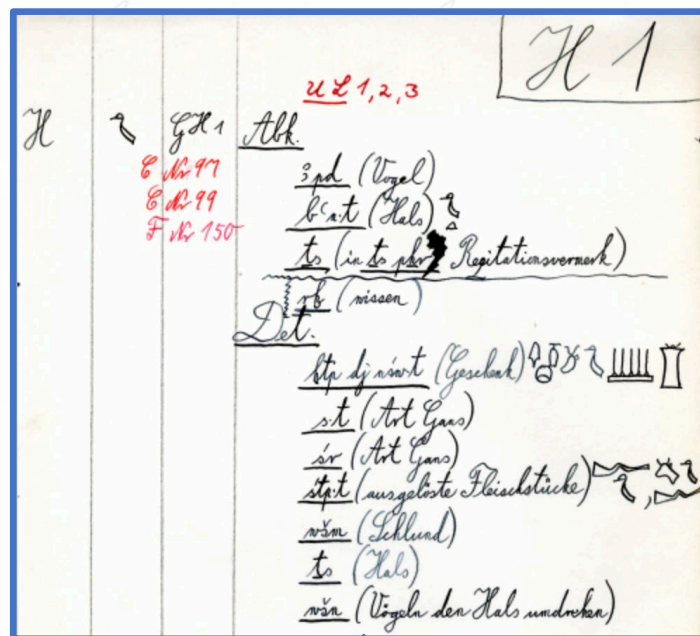 H 1
U L 1, 2, 3
H GH 1 Abk.
C Nr 97 ꜣpd (Vogel)
C Nr 99 bꜥn.t (Hals)
F Nr 150 ṯs (in ṯs pḫr Rezitationsvermerk)
rḫ (wissen)
Det.
ḥtp dj nśwt (Geschenk)
s.t (Art Gans)
śr (Art Gans)
śtp.t (ausgelöste Fleischstücke)
wšm (Schlund)
ṯs (Hals)
wšn (Vögeln den Hals umdrehen)